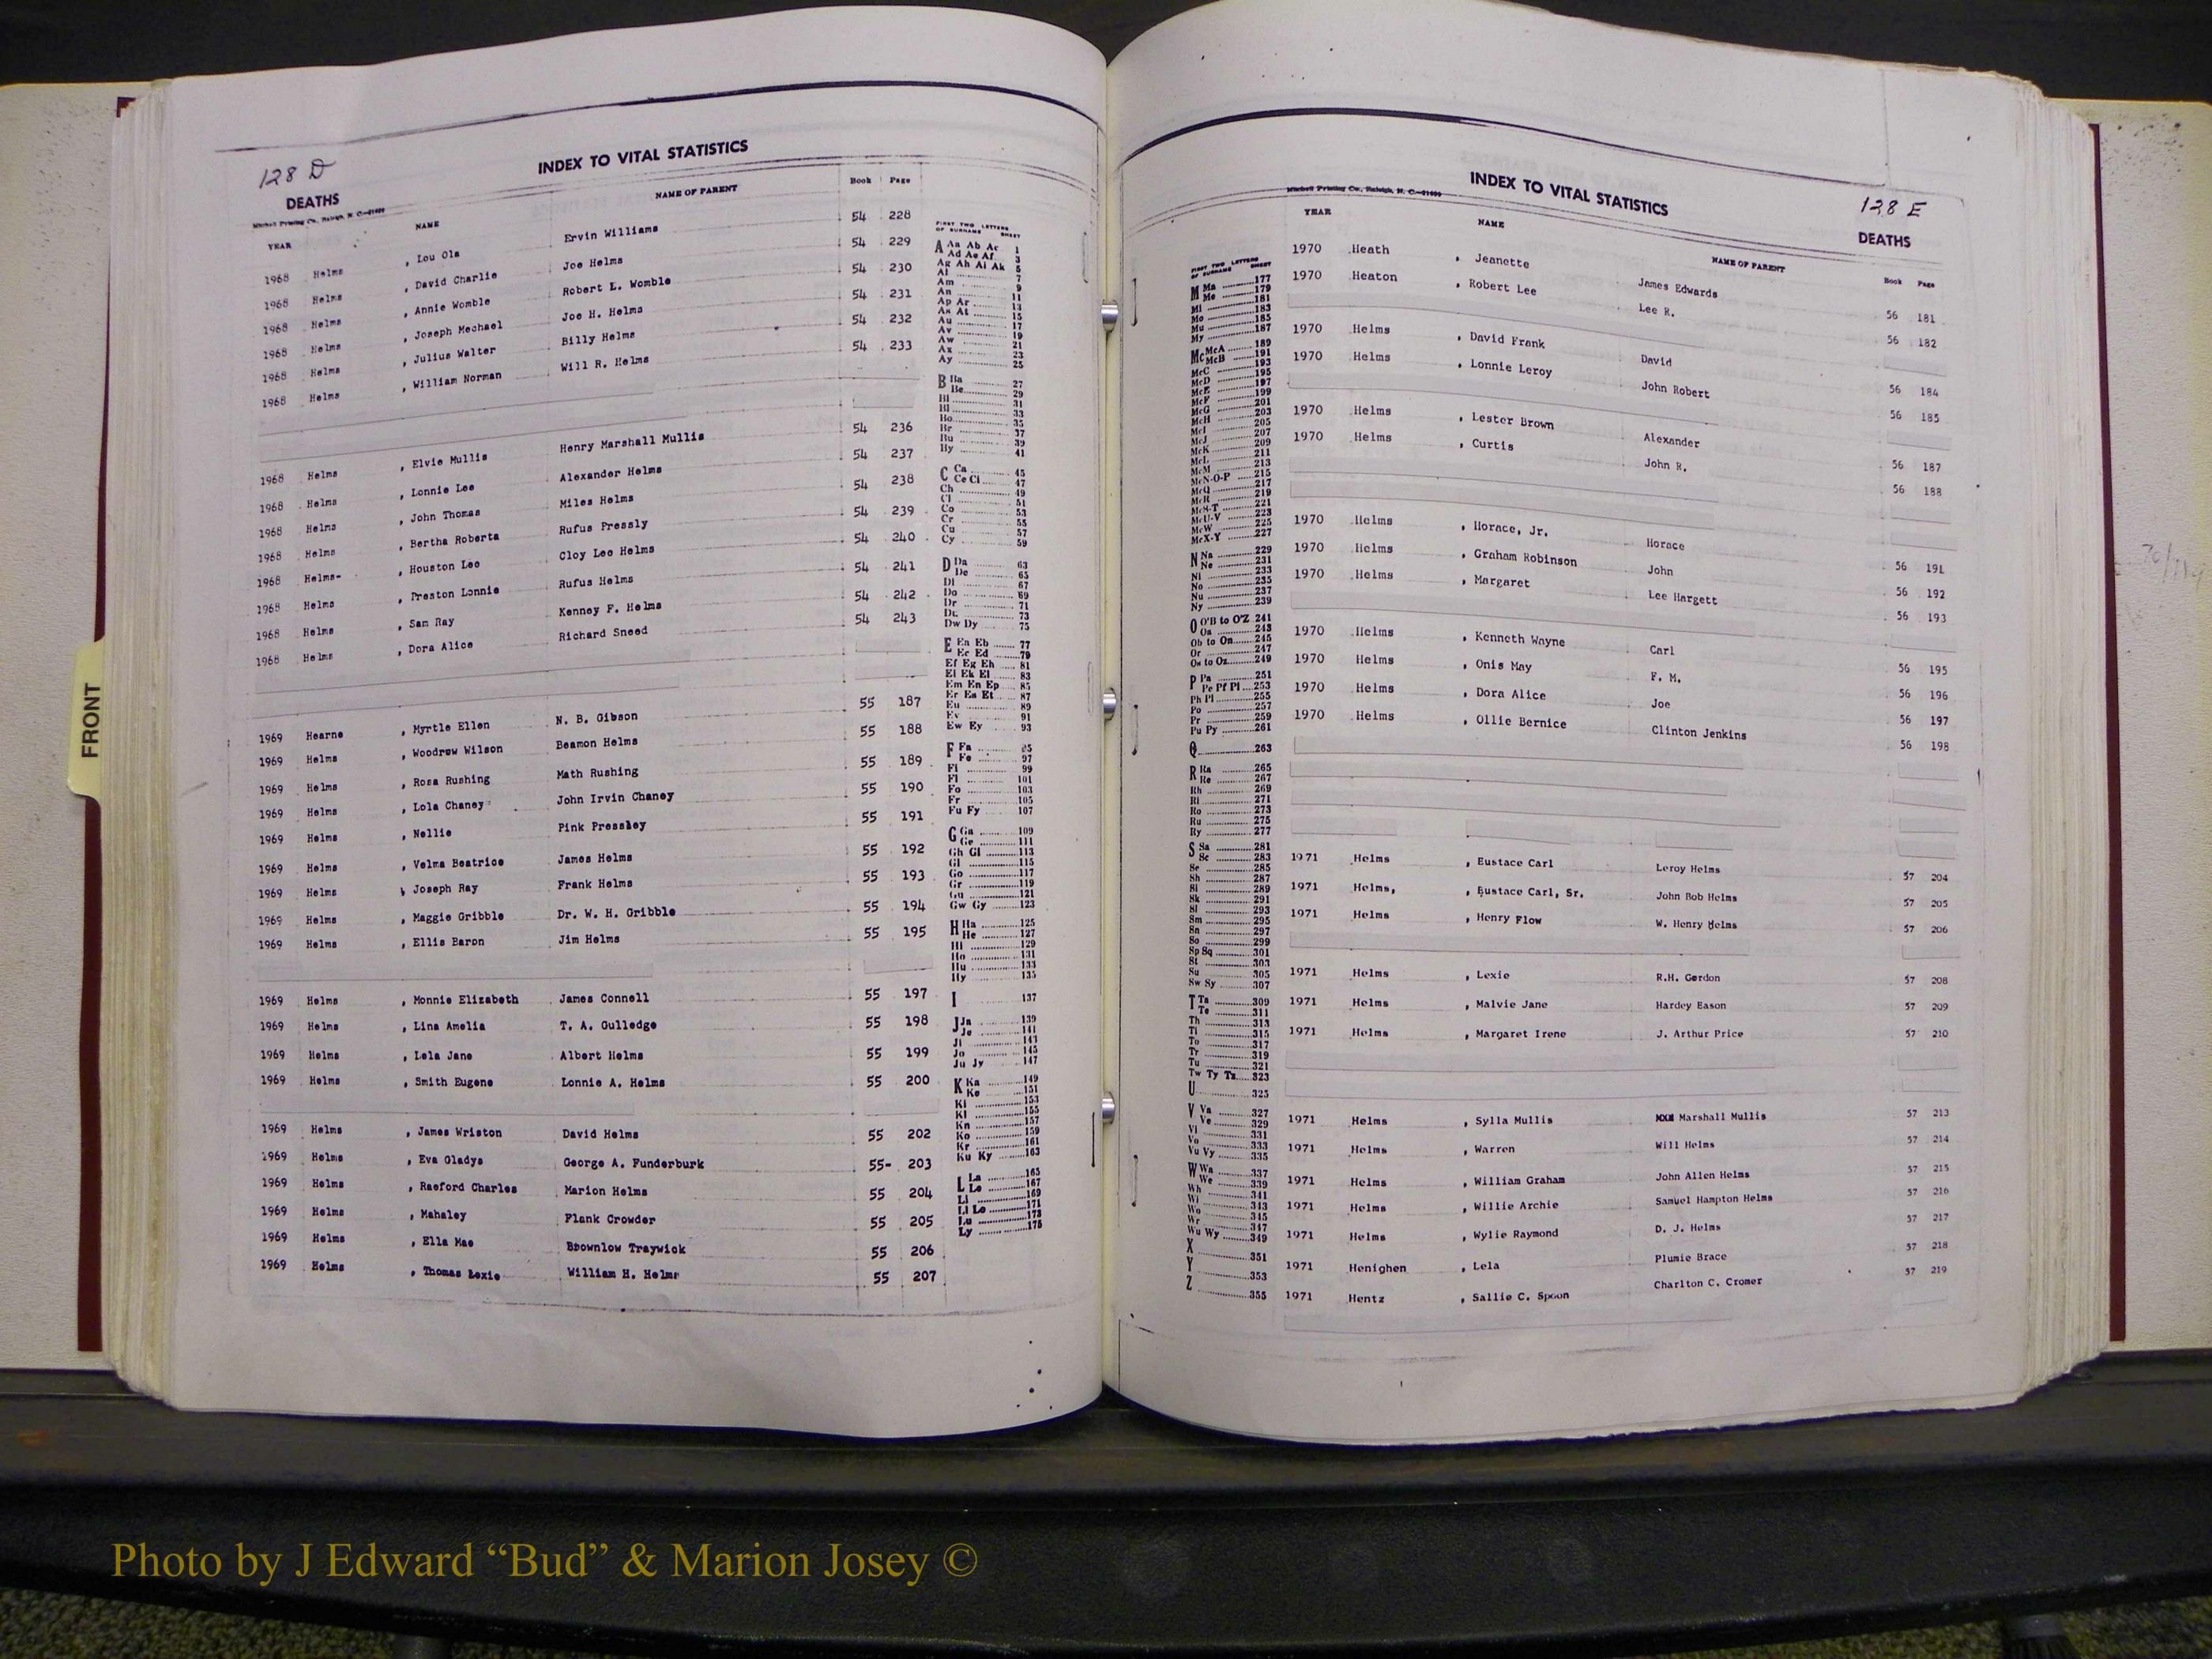 128 D
INDEX TO VITAL STATISTICS
DEATHS
Mitchell Printing Co., Raleigh, N. C.
YEAR NAME NAME OF PARENT Book Page
1968 Helms , Lou Ola Ervin Williams 54 228
1968 Helms , David Charlie Joe Helms 54 229
1968 Helms , Annie Womble Robert L. Womble 54 230
1968 Helms , Joseph Mechael Joe H. Helms 54 231
1968 Helms , Julius Walter Billy Helms 54 232
1968 Helms , William Norman Will R. Helms 54 233
1968 Helms , Elvie Mullis Henry Marshall Mullis 54 236
1968 Helms , Lonnie Lee Alexander Helms 54 237
1968 Helms , John Thomas Miles Helms 54 238
1968 Helms , Bertha Roberta Rufus Pressly 54 239
1968 Helms- , Houston Lee Cloy Lee Helms 54 240
1968 Helms , Preston Lonnie Rufus Helms 54 241
1968 Helms , Sam Ray Kenney F. Helms 54 242
1968 Helms , Dora Alice Richard Sneed 54 243
1969 Hearne , Myrtle Ellen N. B. Gibson 55 187
1969 Helms , Woodrow Wilson Beamon Helms 55 188
1969 Helms , Rosa Rushing Math Rushing 55 189
1969 Helms , Lola Chaney John Irvin Chaney 55 190
1969 Helms , Nellie Pink Pressley 55 191
1969 Helms , Velma Beatrice James Helms 55 192
1969 Helms , Joseph Ray Frank Helms 55 193
1969 Helms , Maggie Gribble Dr. W. H. Gribble 55 194
1969 Helms , Ellis Baron Jim Helms 55 195
1969 Helms , Monnie Elizabeth James Connell 55 197
1969 Helms , Lina Amelia T. A. Gulledge 55 198
1969 Helms , Lela Jane Albert Helms 55 199
1969 Helms , Smith Eugene Lonnie A. Helms 55 200
1969 Helms , James Wriston David Helms 55 202
1969 Helms , Eva Gladys George A. Funderburk 55- 203
1969 Helms , Raeford Charles Marion Helms 55 204
1969 Helms , Mahaley Plank Crowder 55 205
1969 Helms , Ella Mae Brownlow Traywick 55 206
1969 Helms , Thomas Lexie William H. Helms 55 207
FIRST TWO LETTERS
OF SURNAME SHEET
A Aa Ab Ac 1
Ad Ae Af 3
Ag Ah Ai Ak 5
Al 7
Am 9
An 11
Ap Ar 13
As At 15
Au 17
Av 19
Aw 21
Ax 23
Ay 25
B Ba 27
Be 29
Bi 31
Bl 33
Bo 35
Br 37
Bu 39
By 41
C Ca 45
Ce Ci 47
Ch 49
Cl 51
Co 53
Cr 55
Cu 57
Cy 59
D Da 63
De 65
Di 67
Do 69
Dr 71
Du 73
Dw Dy 75
E Ea Eb 77
Ec Ed 79
Ef Eg Eh 81
Ei Ek El 83
Em En Ep 85
Er Es Et 87
Eu 89
Ev 91
Ew Ey 93
F Fa 95
Fe 97
Fi 99
Fl 101
Fo 103
Fr 105
Fu Fy 107
G Ga 109
Ge 111
Gh Gi 113
Gl 115
Go 117
Gr 119
Gu 121
Gw Gy 123
H Ha 125
He 127
Hi 129
Ho 131
Hu 133
Hy 135
I 137
J Ja 139
Je 141
Ji 143
Jo 145
Ju Jy 147
K Ka 149
Ke 151
Ki 153
Kl 155
Kn 157
Ko 159
Kr 161
Ku Ky 163
L La 165
Le 167
Li 169
Ll Lo 171
Lu 173
Ly 175
FRONT
INDEX TO VITAL STATISTICS
128 E
DEATHS
Mitchell Printing Co., Raleigh, N. C.
YEAR NAME NAME OF PARENT Book Page
FIRST TWO LETTERS
OF SURNAME SHEET
M Ma 177
Me 179
Mi 181
Mo 183
Mu 185
My 187
Mc McA 189
McB 191
McC 193
McD 195
McE 197
McF 199
McG 201
McH 203
McI 205
McJ 207
McK 209
McL 211
McM 213
McN-O-P 215
McQ 217
McR 219
McS-T 221
McU-V 223
McW 225
McX-Y 227
N Na 229
Ne 231
Ni 233
No 235
Nu 237
Ny 239
O O'B to O'Z 241
Oa 243
Ob to On 245
Or 247
Os to Oz 249
P Pa 251
Pe Pf Pi 253
Ph Pl 255
Po 257
Pr 259
Pu Py 261
Q 263
R Ra 265
Re 267
Rh 269
Ri 271
Ro 273
Ru 275
Ry 277
S Sa 281
Sc 283
Se 285
Sh 287
Si 289
Sk 291
Sl 293
Sm 295
Sn 297
So 299
Sp Sq 301
St 303
Su 305
Sw Sy 307
T Ta 309
Te 311
Th 313
Ti 315
To 317
Tr 319
Tu 321
Tw Ty Tz 323
U 325
V Va 327
Ve 329
Vi 331
Vo 333
Vu Vy 335
W Wa 337
We 339
Wh 341
Wi 343
Wo 345
Wr 347
Wu Wy 349
X 351
Y 353
Z 355
1970 Heath , Jeanette James Edwards 56 181
1970 Heaton , Robert Lee Lee R. 56 182
1970 Helms , David Frank David 56 184
1970 Helms , Lonnie Leroy John Robert 56 185
1970 Helms , Lester Brown Alexander 56 187
1970 Helms , Curtis John R. 56 188
1970 Helms , Horace, Jr. Horace 56 191
1970 Helms , Graham Robinson John 56 192
1970 Helms , Margaret Lee Hargett 56 193
1970 Helms , Kenneth Wayne Carl 56 195
1970 Helms , Onis May F. M. 56 196
1970 Helms , Dora Alice Joe 56 197
1970 Helms , Ollie Bernice Clinton Jenkins 56 198
1971 Helms , Eustace Carl Leroy Helms 57 204
1971 Helms, , Eustace Carl, Sr. John Bob Helms 57 205
1971 Helms , Henry Flow W. Henry Helms 57 206
1971 Helms , Lexie R.H. Gordon 57 208
1971 Helms , Malvie Jane Hardey Eason 57 209
1971 Helms , Margaret Irene J. Arthur Price 57 210
1971 Helms , Sylla Mullis Marshall Mullis 57 213
1971 Helms , Warren Will Helms 57 214
1971 Helms , William Graham John Allen Helms 57 215
1971 Helms , Willie Archie Samuel Hampton Helms 57 216
1971 Helms , Wylie Raymond D. J. Helms 57 217
1971 Henighen , Lela Plumie Brace 57 218
1971 Hentz , Sallie C. Spoon Charlton C. Cromer 57 219
Photo by J Edward “Bud” & Marion Josey ©